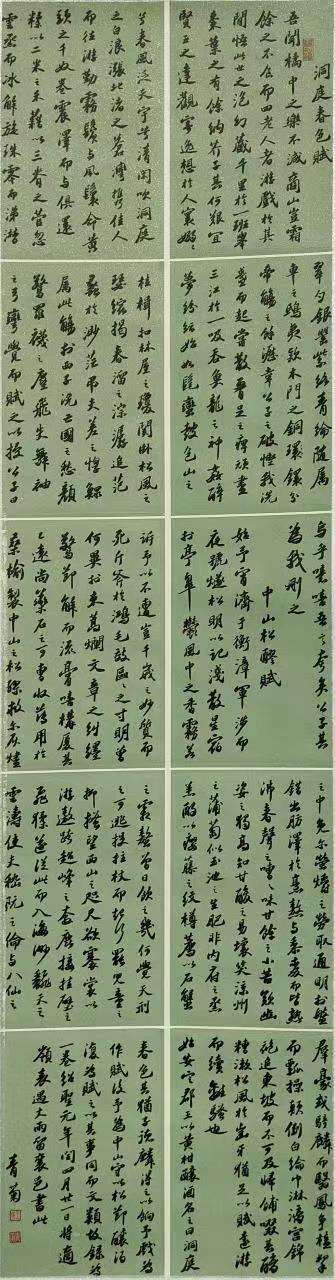 洞庭春色賦
吾聞橘中之樂不減商山豈霜
餘之不食而四老人者遊戲於其
間悟此世之泡幻藏千里於一班舉
棗葉之有餘納芥子其何艱宜
賢王之達觀寄逸想於人寰嫋嫋
兮春風泛天宇兮清閑吹洞庭
之白浪漲北渚之蒼灣攜佳人
而往游勤霧鬢與風鬟命黃
頭之千奴卷震澤而與俱還
糅以二米之禾藉以三脊之菅忽
雲烝而冰解旋珠零而涕潸
翠勺銀罌紫絡青綸隨屬
車之鴟夷款木門之銅鐶分
帝觴之餘瀝幸公子之破慳我洗
盞而起嘗散腰足之痺頑盡
三江於一吸吞魚龍之神姦醉
夢紛紜始如髦蠻鼓包山之
桂楫扣林屋之瓊關卧松風之
瑟縮揭春溜之淙潺追范
蠡於渺茫弔夫差之惸鰥
屬此觴於西子洗亡國之愁顏
驚羅襪之塵飛失舞袖
之弓彎覺而賦之以授公子曰
烏乎噫嘻吾言夸矣公子其
為我刪之
中山松醪賦
始予宵濟於衡漳軍涉而
夜號燧松明以記淺散星宿
於亭皋鬱風中之香霧若
訴予以不遭豈千歲之妙質而
死斤斧於鴻毛效區區之寸明曾
何異於束蒿爛文章之糾纏
驚節解而流膏嘻構廈其
已遠尚藥石之可曹收薄用於
桑榆製中山之松醪救爾灰燼
之中免爾螢爝之勞取通明於盤
錯出肪澤於烹熬與黍麥而皆熟
沸舂聲之嘈嘈味甘餘之小苦歎幽
姿之獨高知甘酸之易壞笑涼州
之蒲萄似玉池之生肥非內府之烝
羔酌以癭藤之紋樽薦以石蟹
之霜螯曾日飲之幾何覺天刑
之可逃投拄杖而起行罷兒童之
抑搔望西山之咫尺欲褰裳以
游遨跨超峰之奔鹿接挂壁之
飛猱遂從此而入海渺翻天之
雲濤使夫嵇阮之倫與八仙之
群豪或騎麟而翳鳳爭榼挈
而瓢操顛倒白綸巾淋漓宮錦
袍追東坡而不可及歸餔歠其醨
糟漱松風於齒牙猶足以賦遠游
而續離騷也
始安定郡王以黃柑釀酒名之曰洞庭
春色其猶子德麟得之以餉予戲為
作賦後予為中山守以松節釀酒
復為賦之以其事同而文類故錄為
一卷紹聖元年閏四月廿一日將適
嶺表遇大雨留襄邑書此
青菊